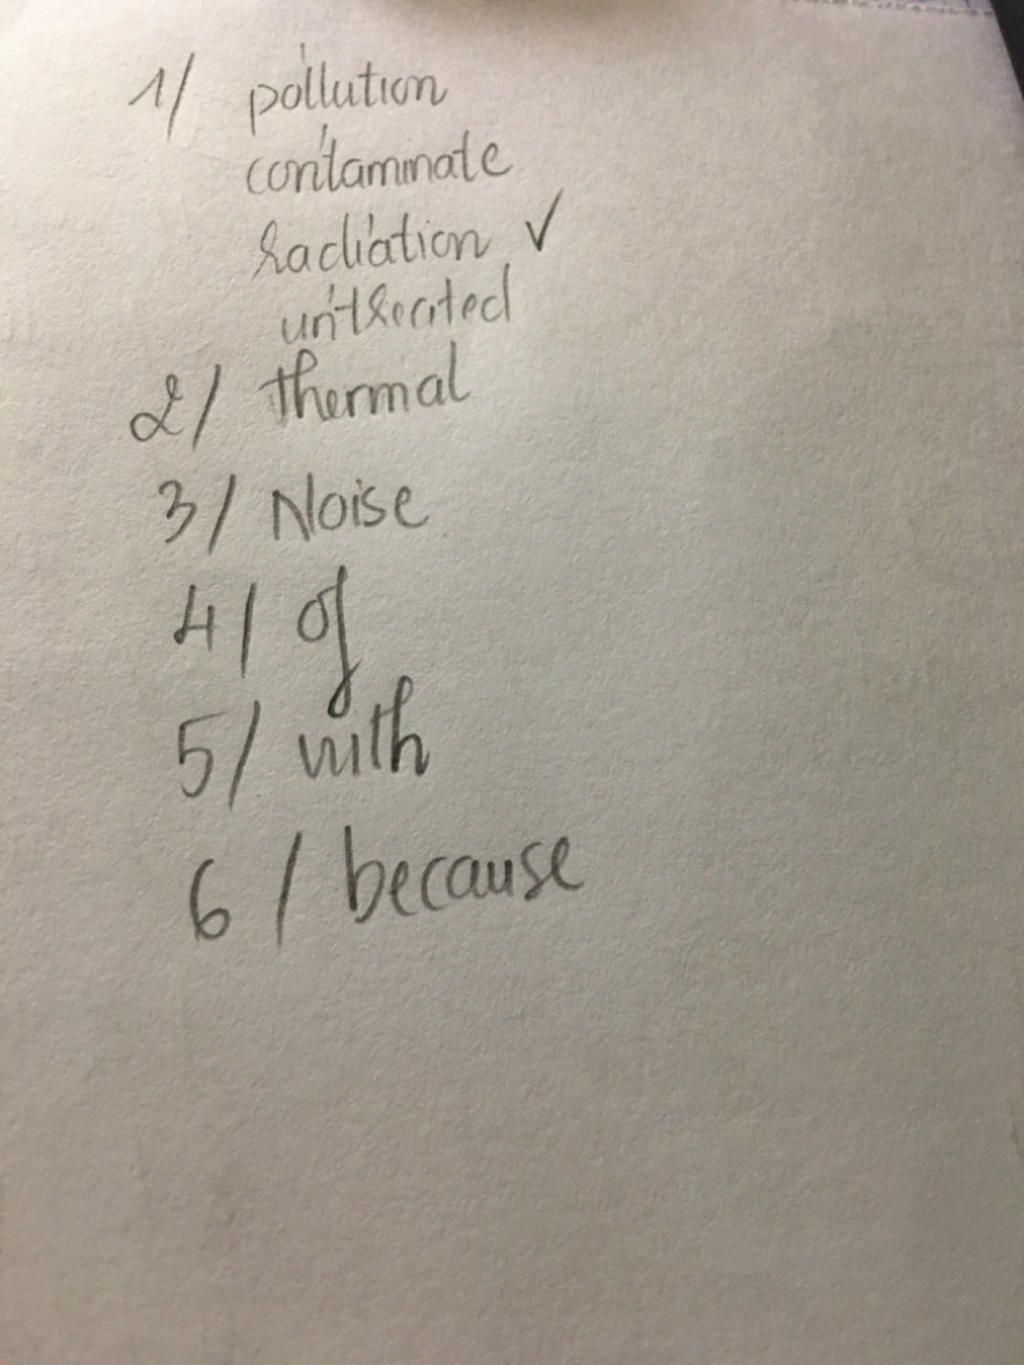 1/ pollution
contaminate
radiation ✓
untreated
2/ thermal
3/ Noise
4/ of
5/ with
6/ because